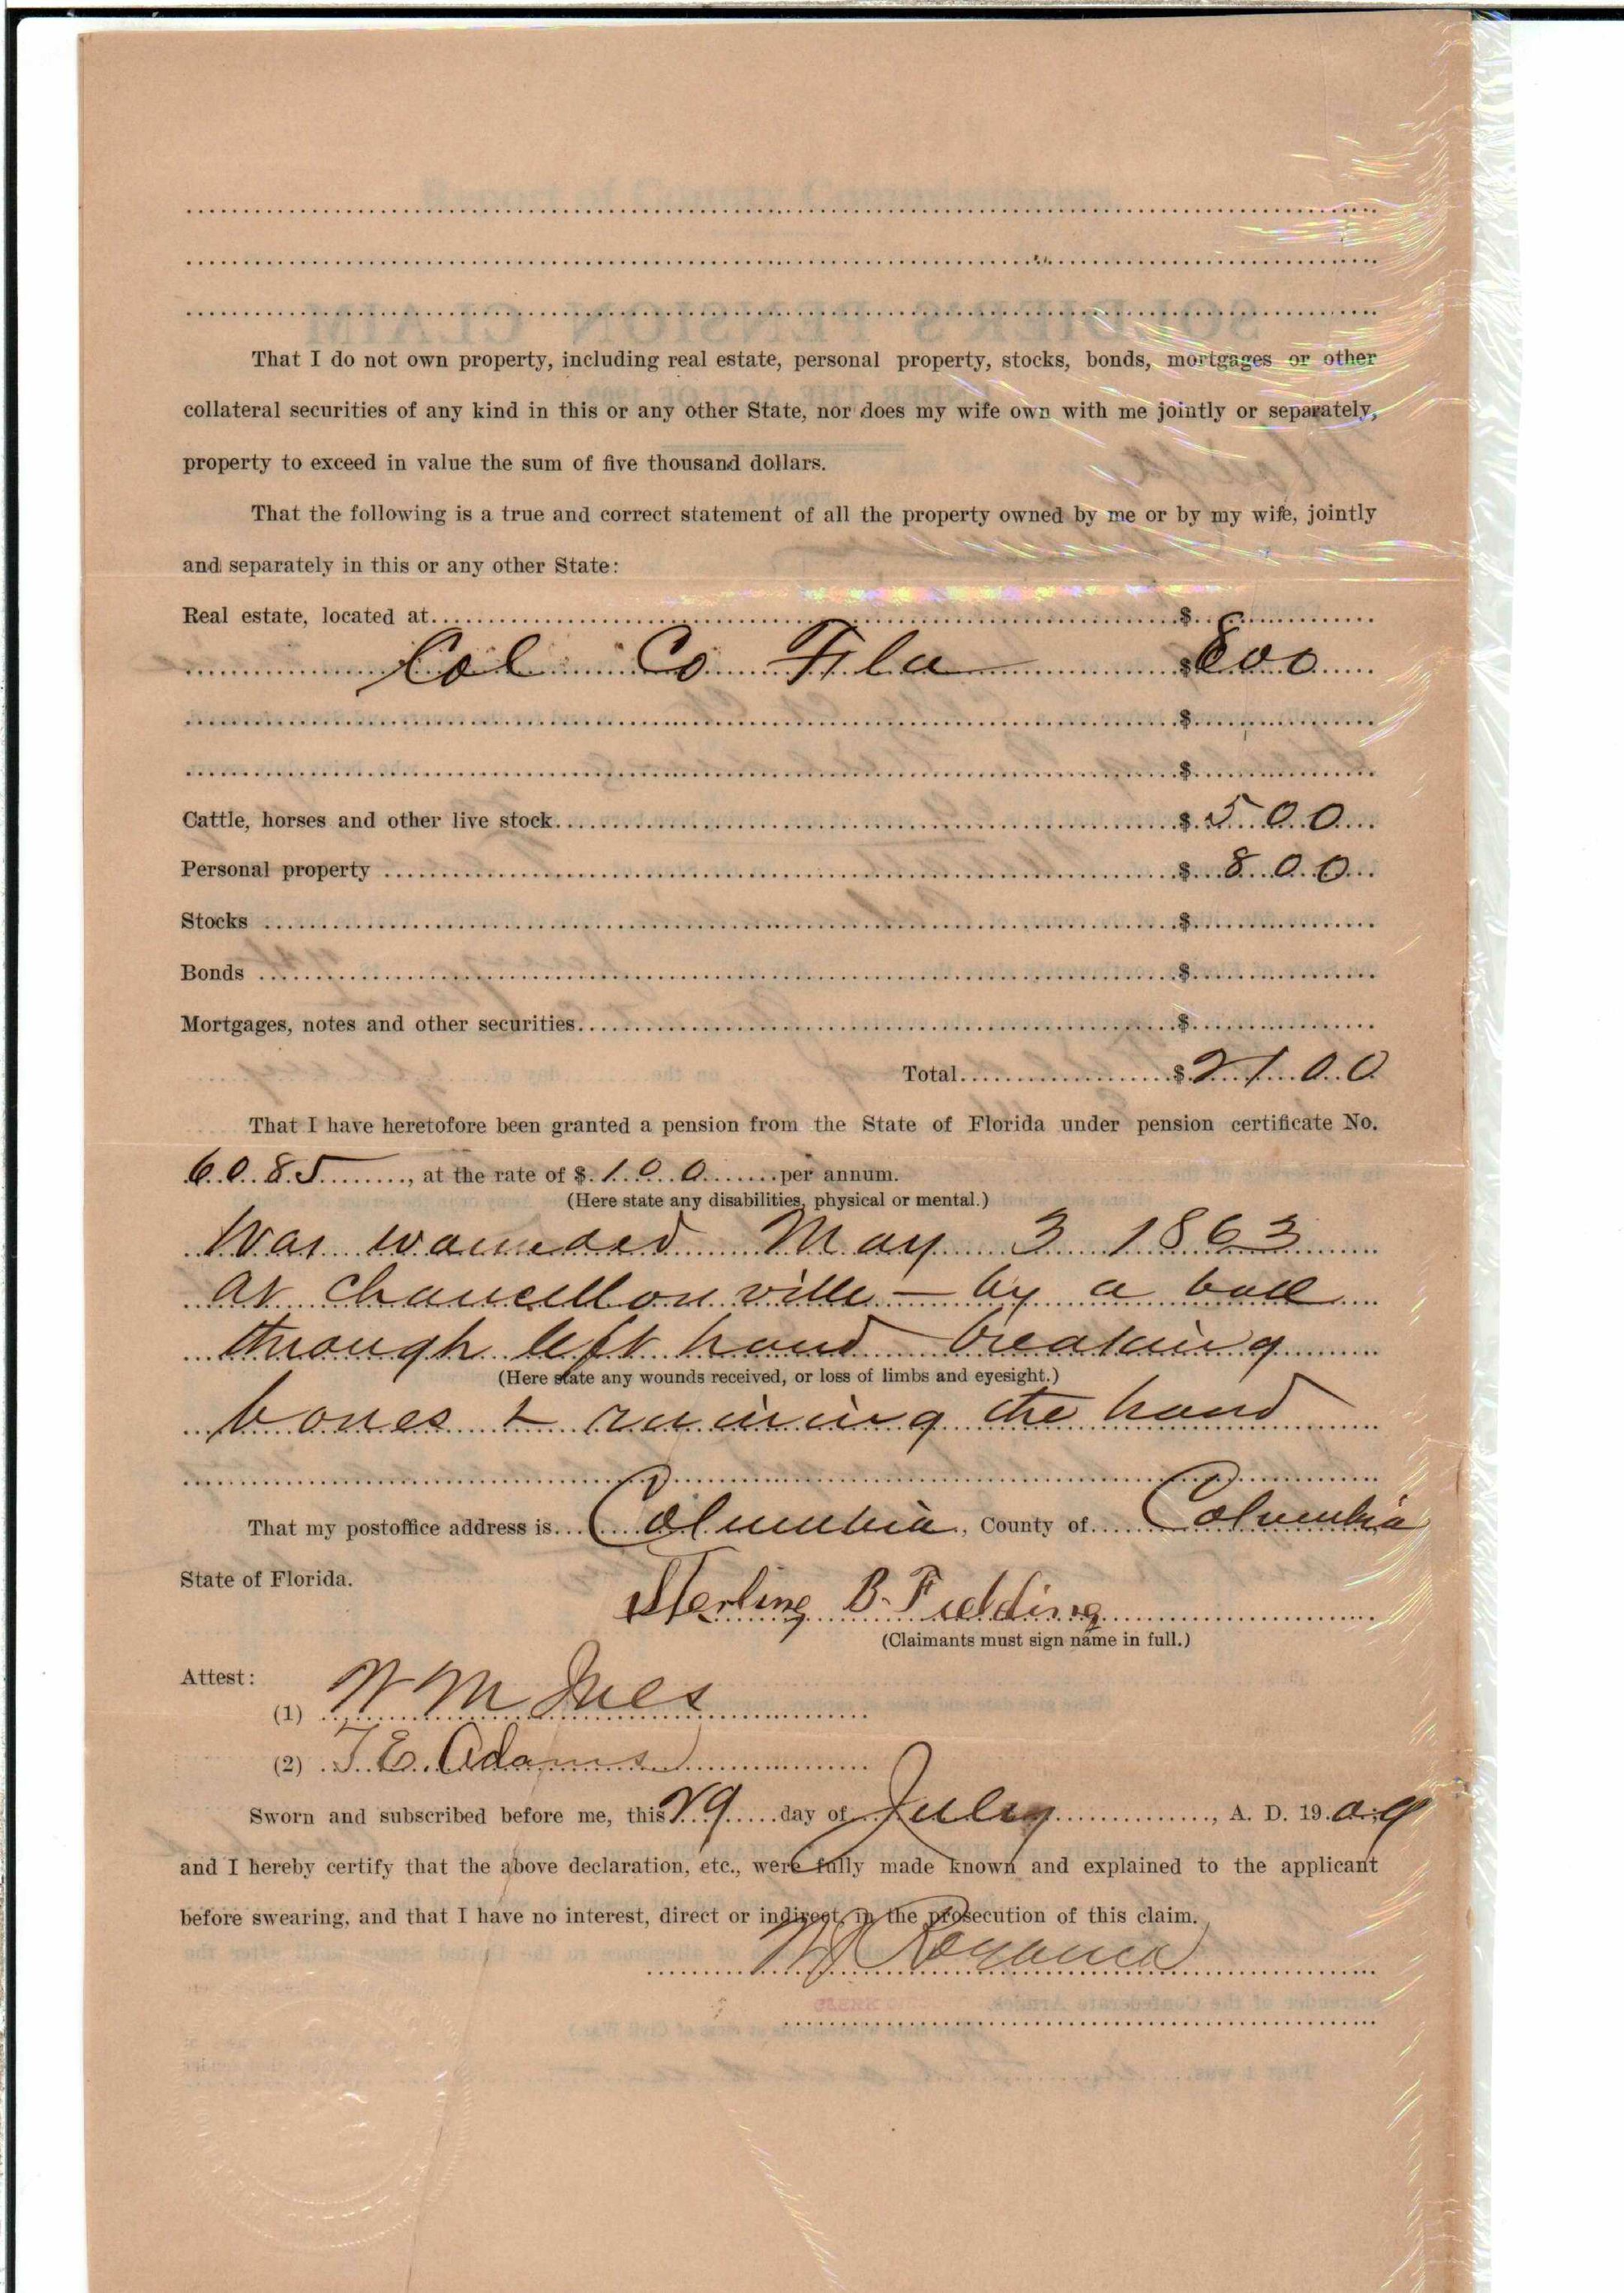 That I do not own property, including real estate, personal property, stocks, bonds, mortgages or other
collateral securities of any kind in this or any other State, nor does my wife own with me jointly or separately,
property to exceed in value the sum of five thousand dollars.
That the following is a true and correct statement of all the property owned by me or by my wife, jointly
and separately in this or any other State:
Real estate, located at $
Col Co Fla $800
$
$
Cattle, horses and other live stock $500
Personal property $800
Stocks $
Bonds $
Mortgages, notes and other securities $
Total $2100
That I have heretofore been granted a pension from the State of Florida under pension certificate No.
6085, at the rate of $100 per annum.
(Here state any disabilities, physical or mental.)
Was wounded May 3 1863
at Chancellorsville – by a ball
through left hand breaking
(Here state any wounds received, or loss of limbs and eyesight.)
bones & ruining the hand
That my postoffice address is Columbia, County of Columbia
State of Florida.
Sterling B. Fielding
(Claimants must sign name in full.)
Attest:
(1) W M Ives
(2) T. E. Adams
Sworn and subscribed before me, this 29 day of July, A. D. 19 09
and I hereby certify that the above declaration, etc., were fully made known and explained to the applicant
before swearing, and that I have no interest, direct or indirect, in the prosecution of this claim.